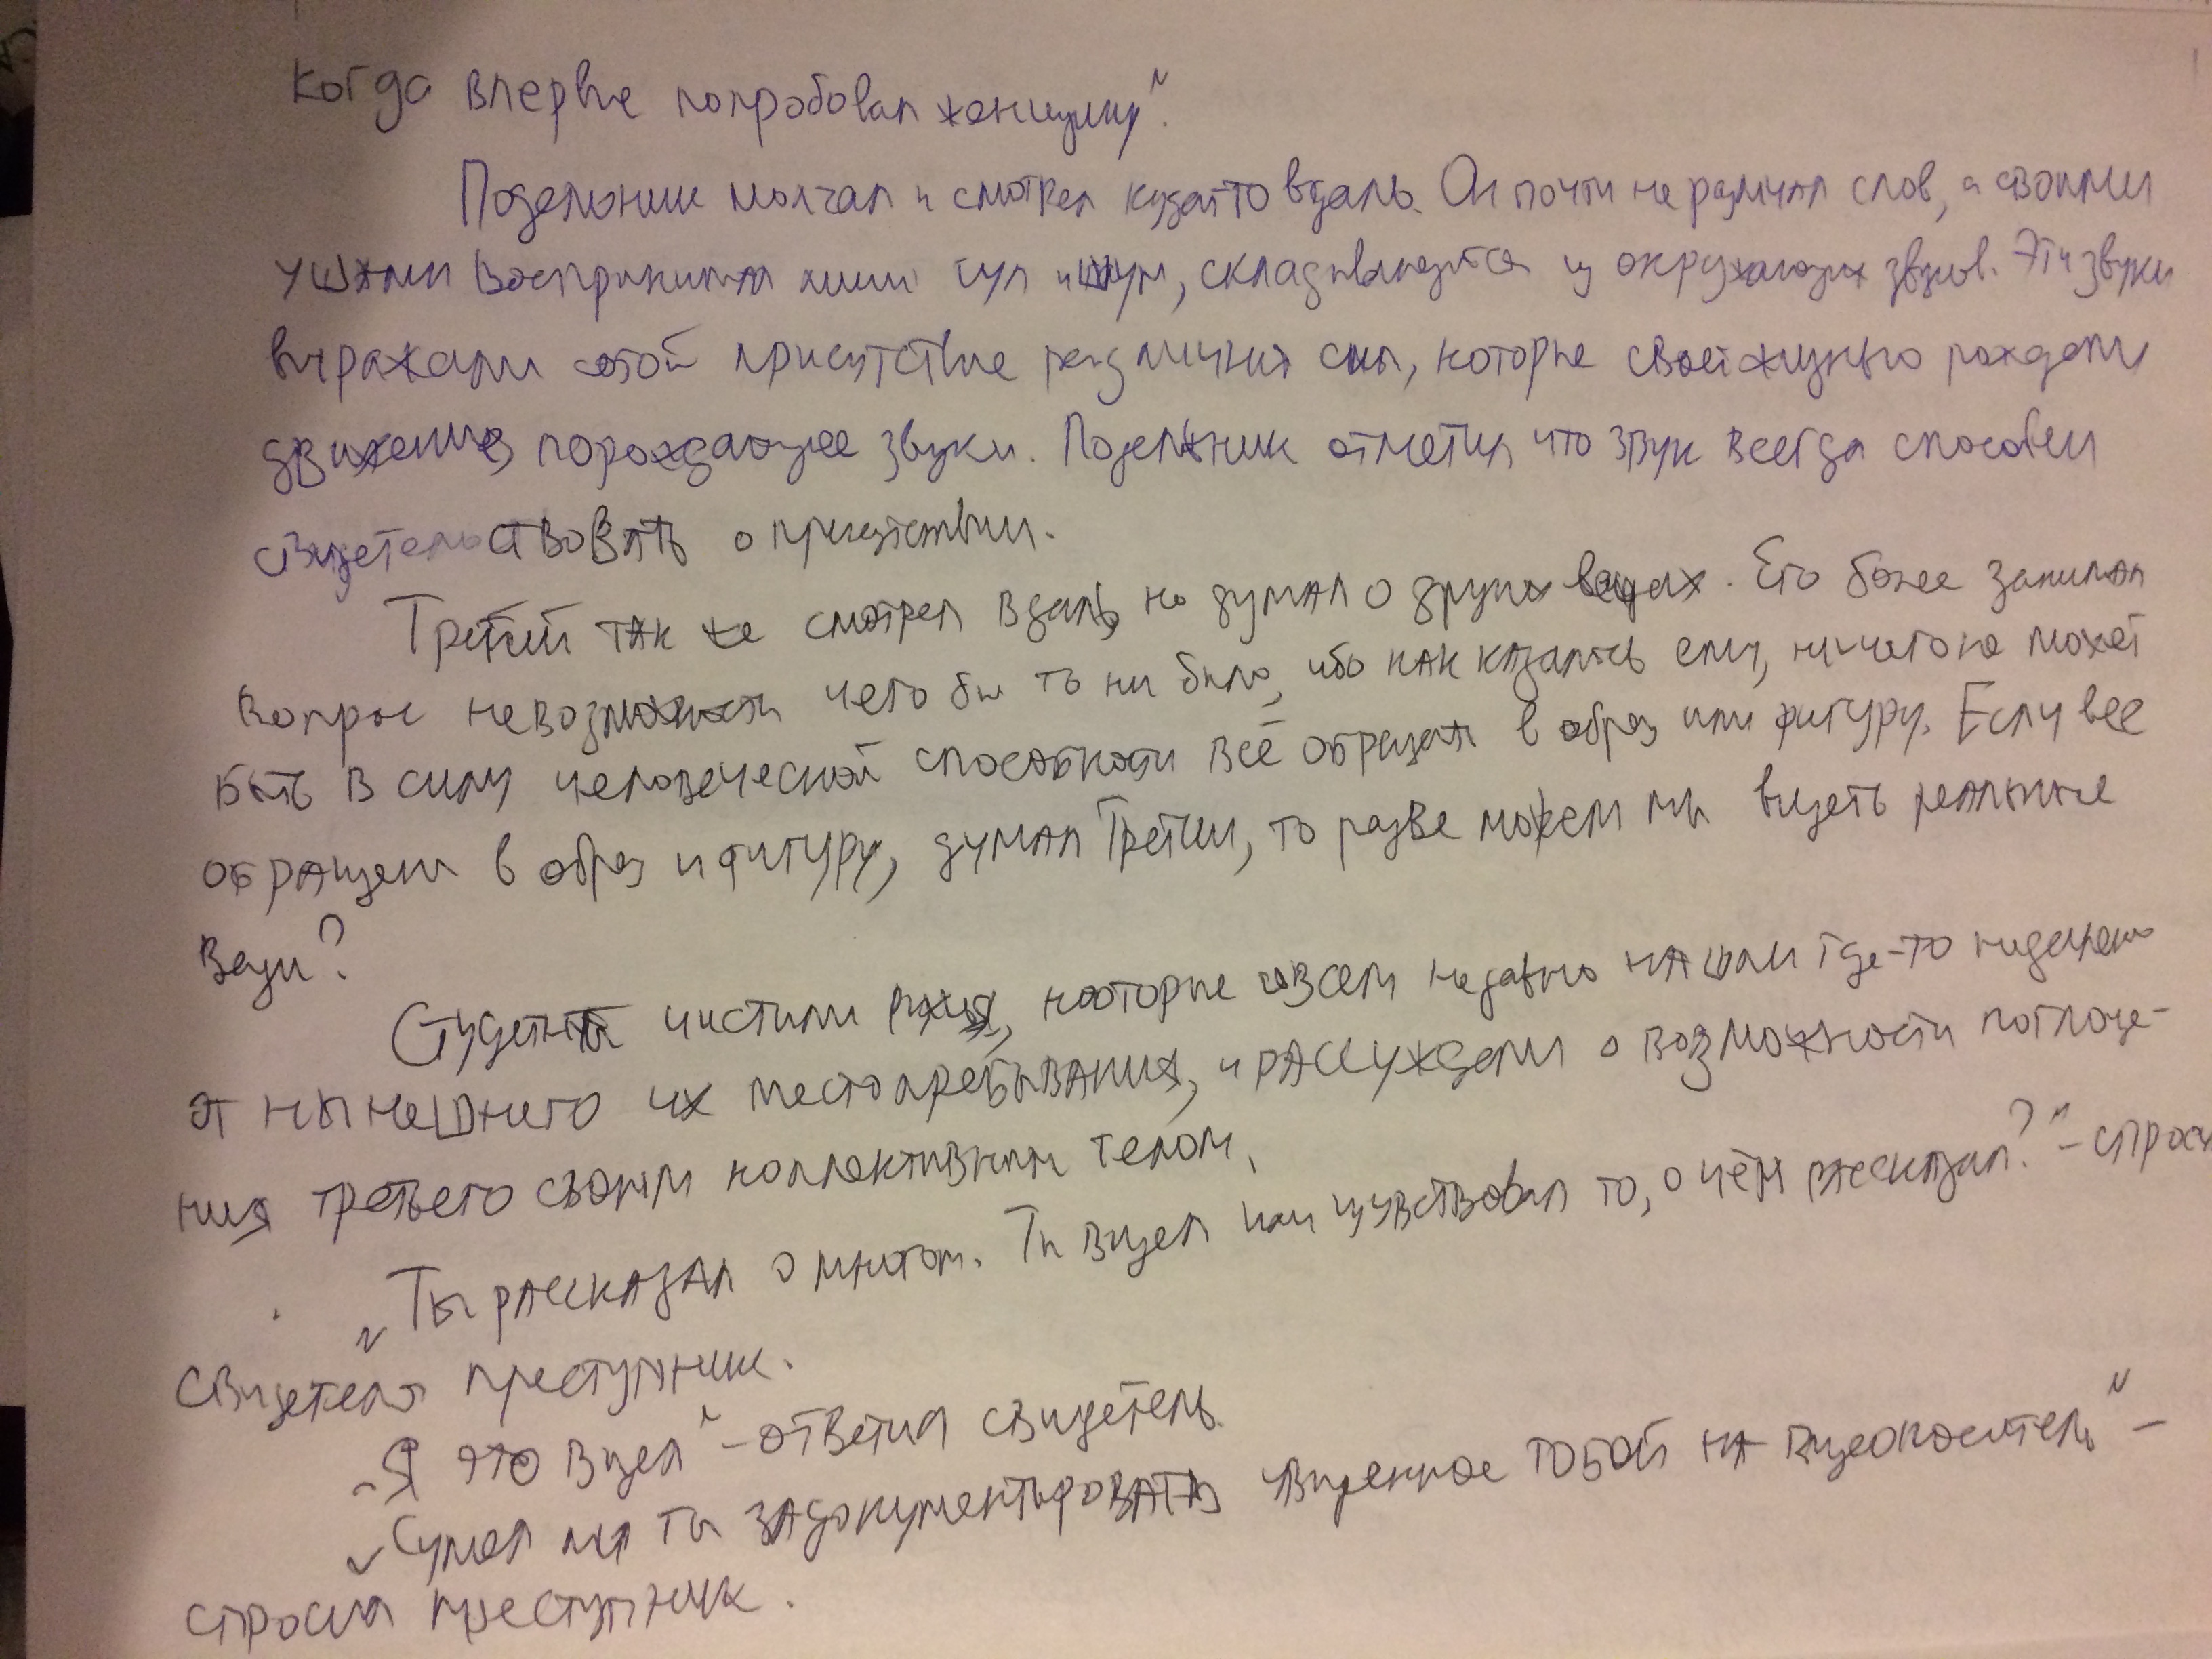 Когда впервые попробовал женщину".
Подельник молчал и смотрел куда-то вдаль. Он почти не различал слов, а своими
ушами воспринимал лишь гул и шум, складывающийся из окружающих звуков. Эти звуки
выражали собой присутствие различных сил, которые своей жизнью рождали
движение, порождающее звуки. Подельник отметил, что звук всегда способен
свидетельствовать о присутствии.
Третий так же смотрел вдаль, но думал о других вещах. Его более занимал
вопрос невозможности чего бы то ни было, ибо как казалось ему, ничего не может
быть в силу человеческой способности всё обращать в образ или фигуру. Если все
обращаем в образ и фигуру, думал Третий, то разве можем мы видеть реальные
вещи?
Студенты чистили ружья, которые совсем недавно нашли где-то недалеко
от нынешнего их местопребывания, и рассуждали о возможности поглоще-
ния третьего своим коллективным телом.
"Ты рассказал о многом. Ты видел или чувствовал то, о чём рассказал?" – спросил
свидетеля преступник.
"Я это видел" – ответил свидетель.
"Сумел ли ты задокументировать увиденное тобой на видеоноситель" –
спросил преступник.